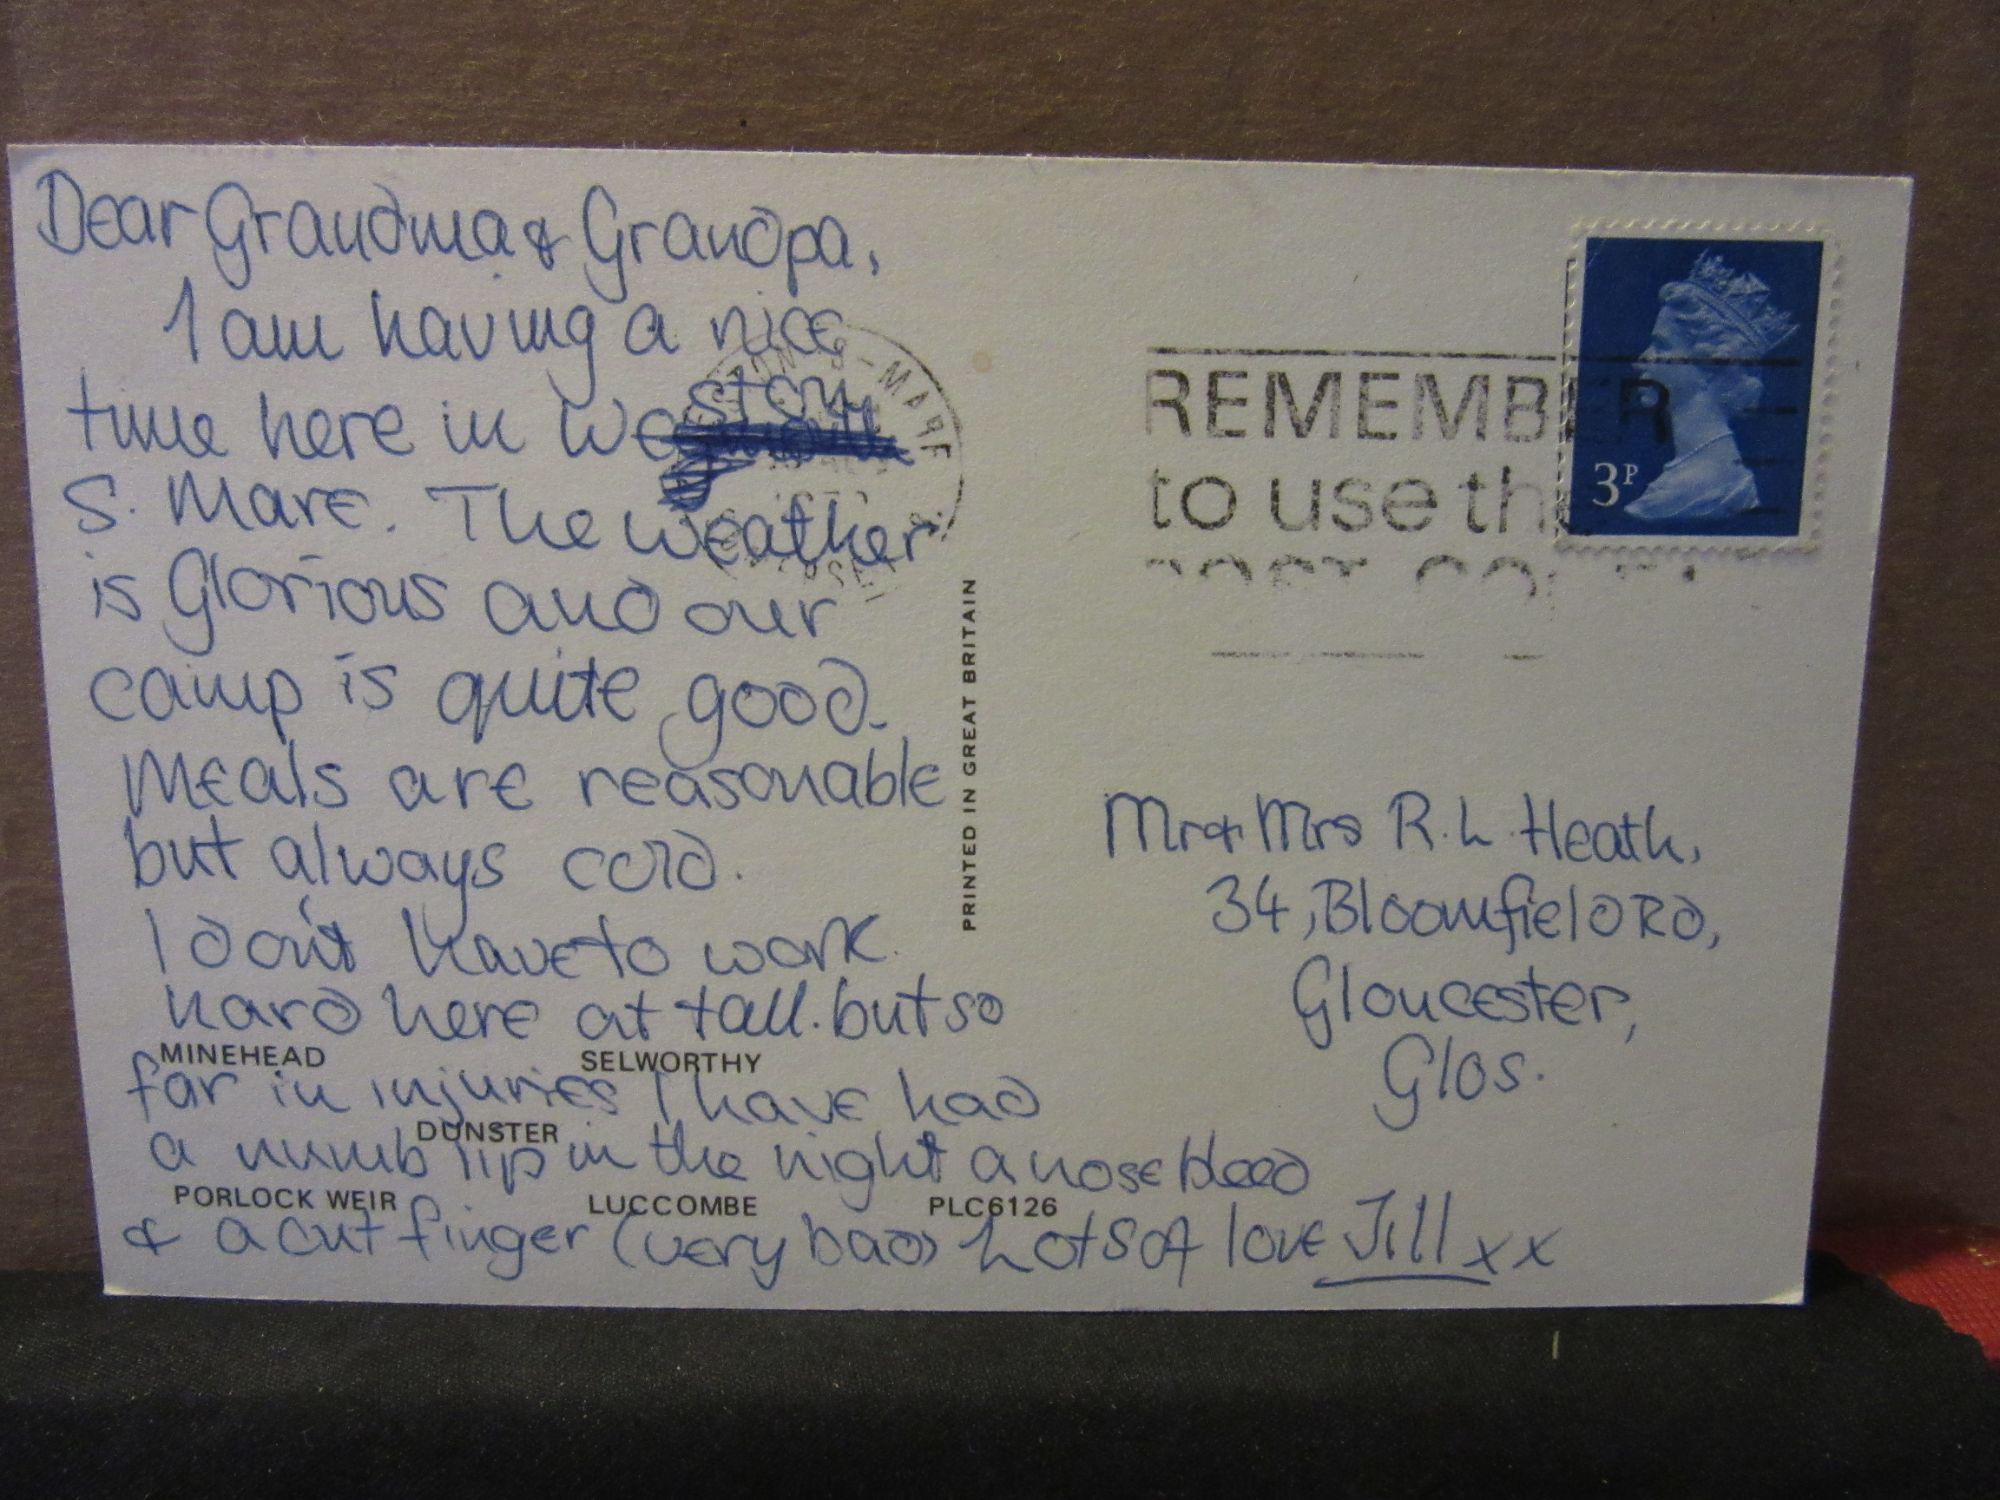 Dear Grandma & Grandpa,
I am having a nice
time here in Weston
S. Mare. The weather
is glorious and our
camp is quite good.
Meals are reasonable
but always cold.
I don't have to work
hard here at tall. but so
far in injuries I have had
a numb lip in the night a nose bleed
& a cut finger (very bad) Lots of love Jill xx
MINEHEAD SELWORTHY
DUNSTER
PORLOCK WEIR LUCCOMBE PLC6126
PRINTED IN GREAT BRITAIN
3P
REMEMBER
to use the
Mr & Mrs R. L. Heath,
34, Bloomfield RD,
Gloucester,
Glos.